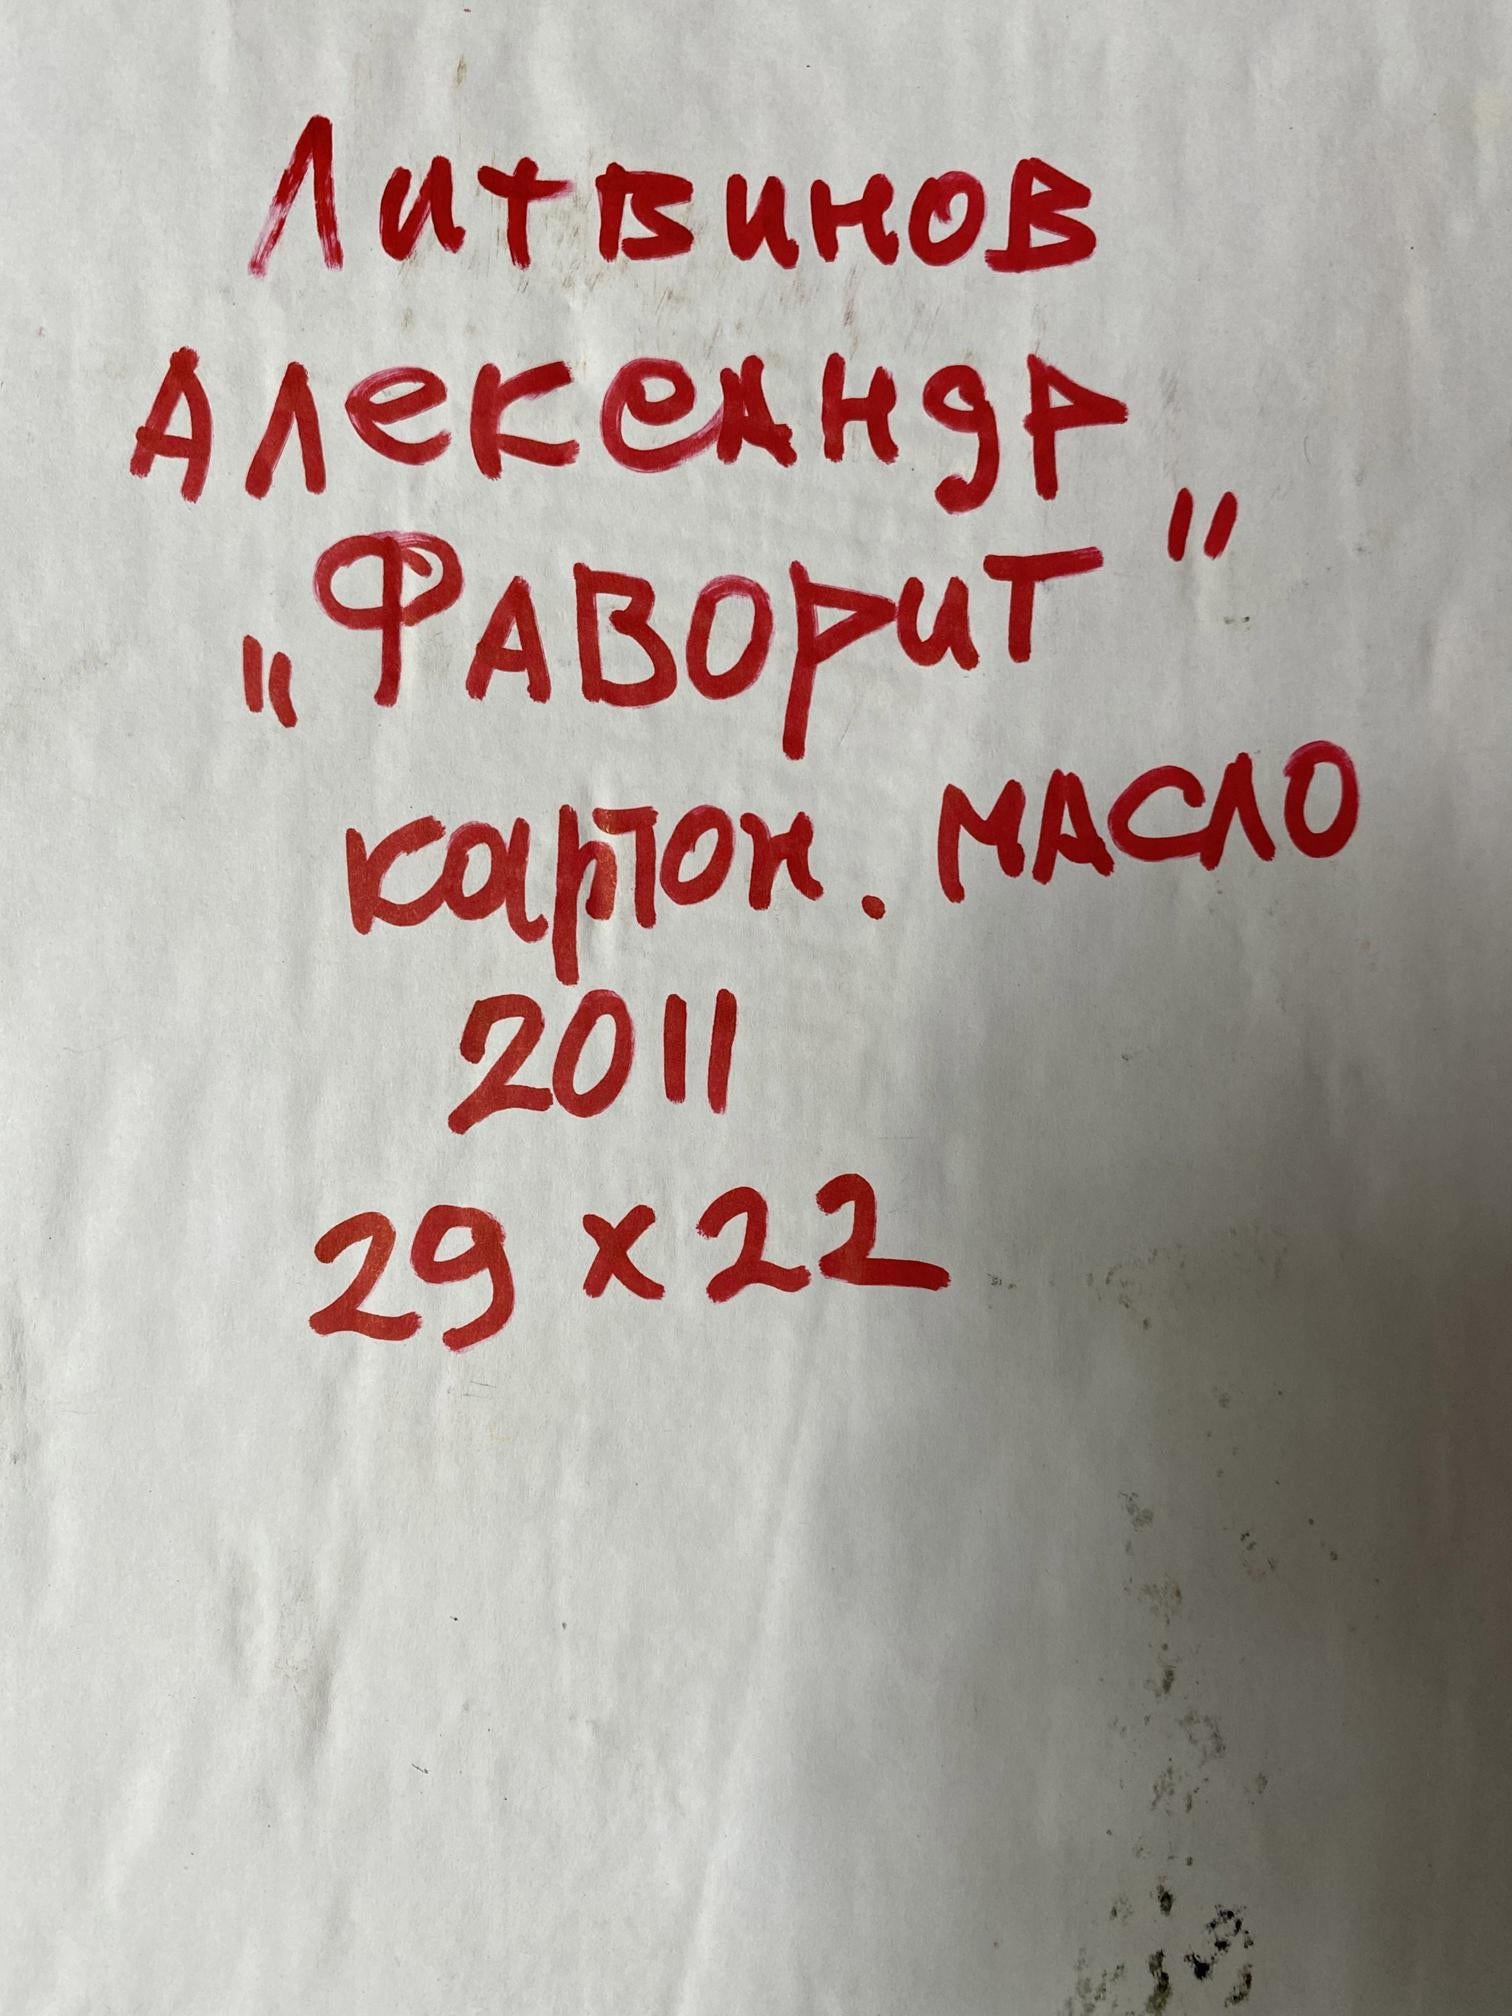 Литвинов
Александр
„Фаворит"
картон. масло
2011
29 x 22